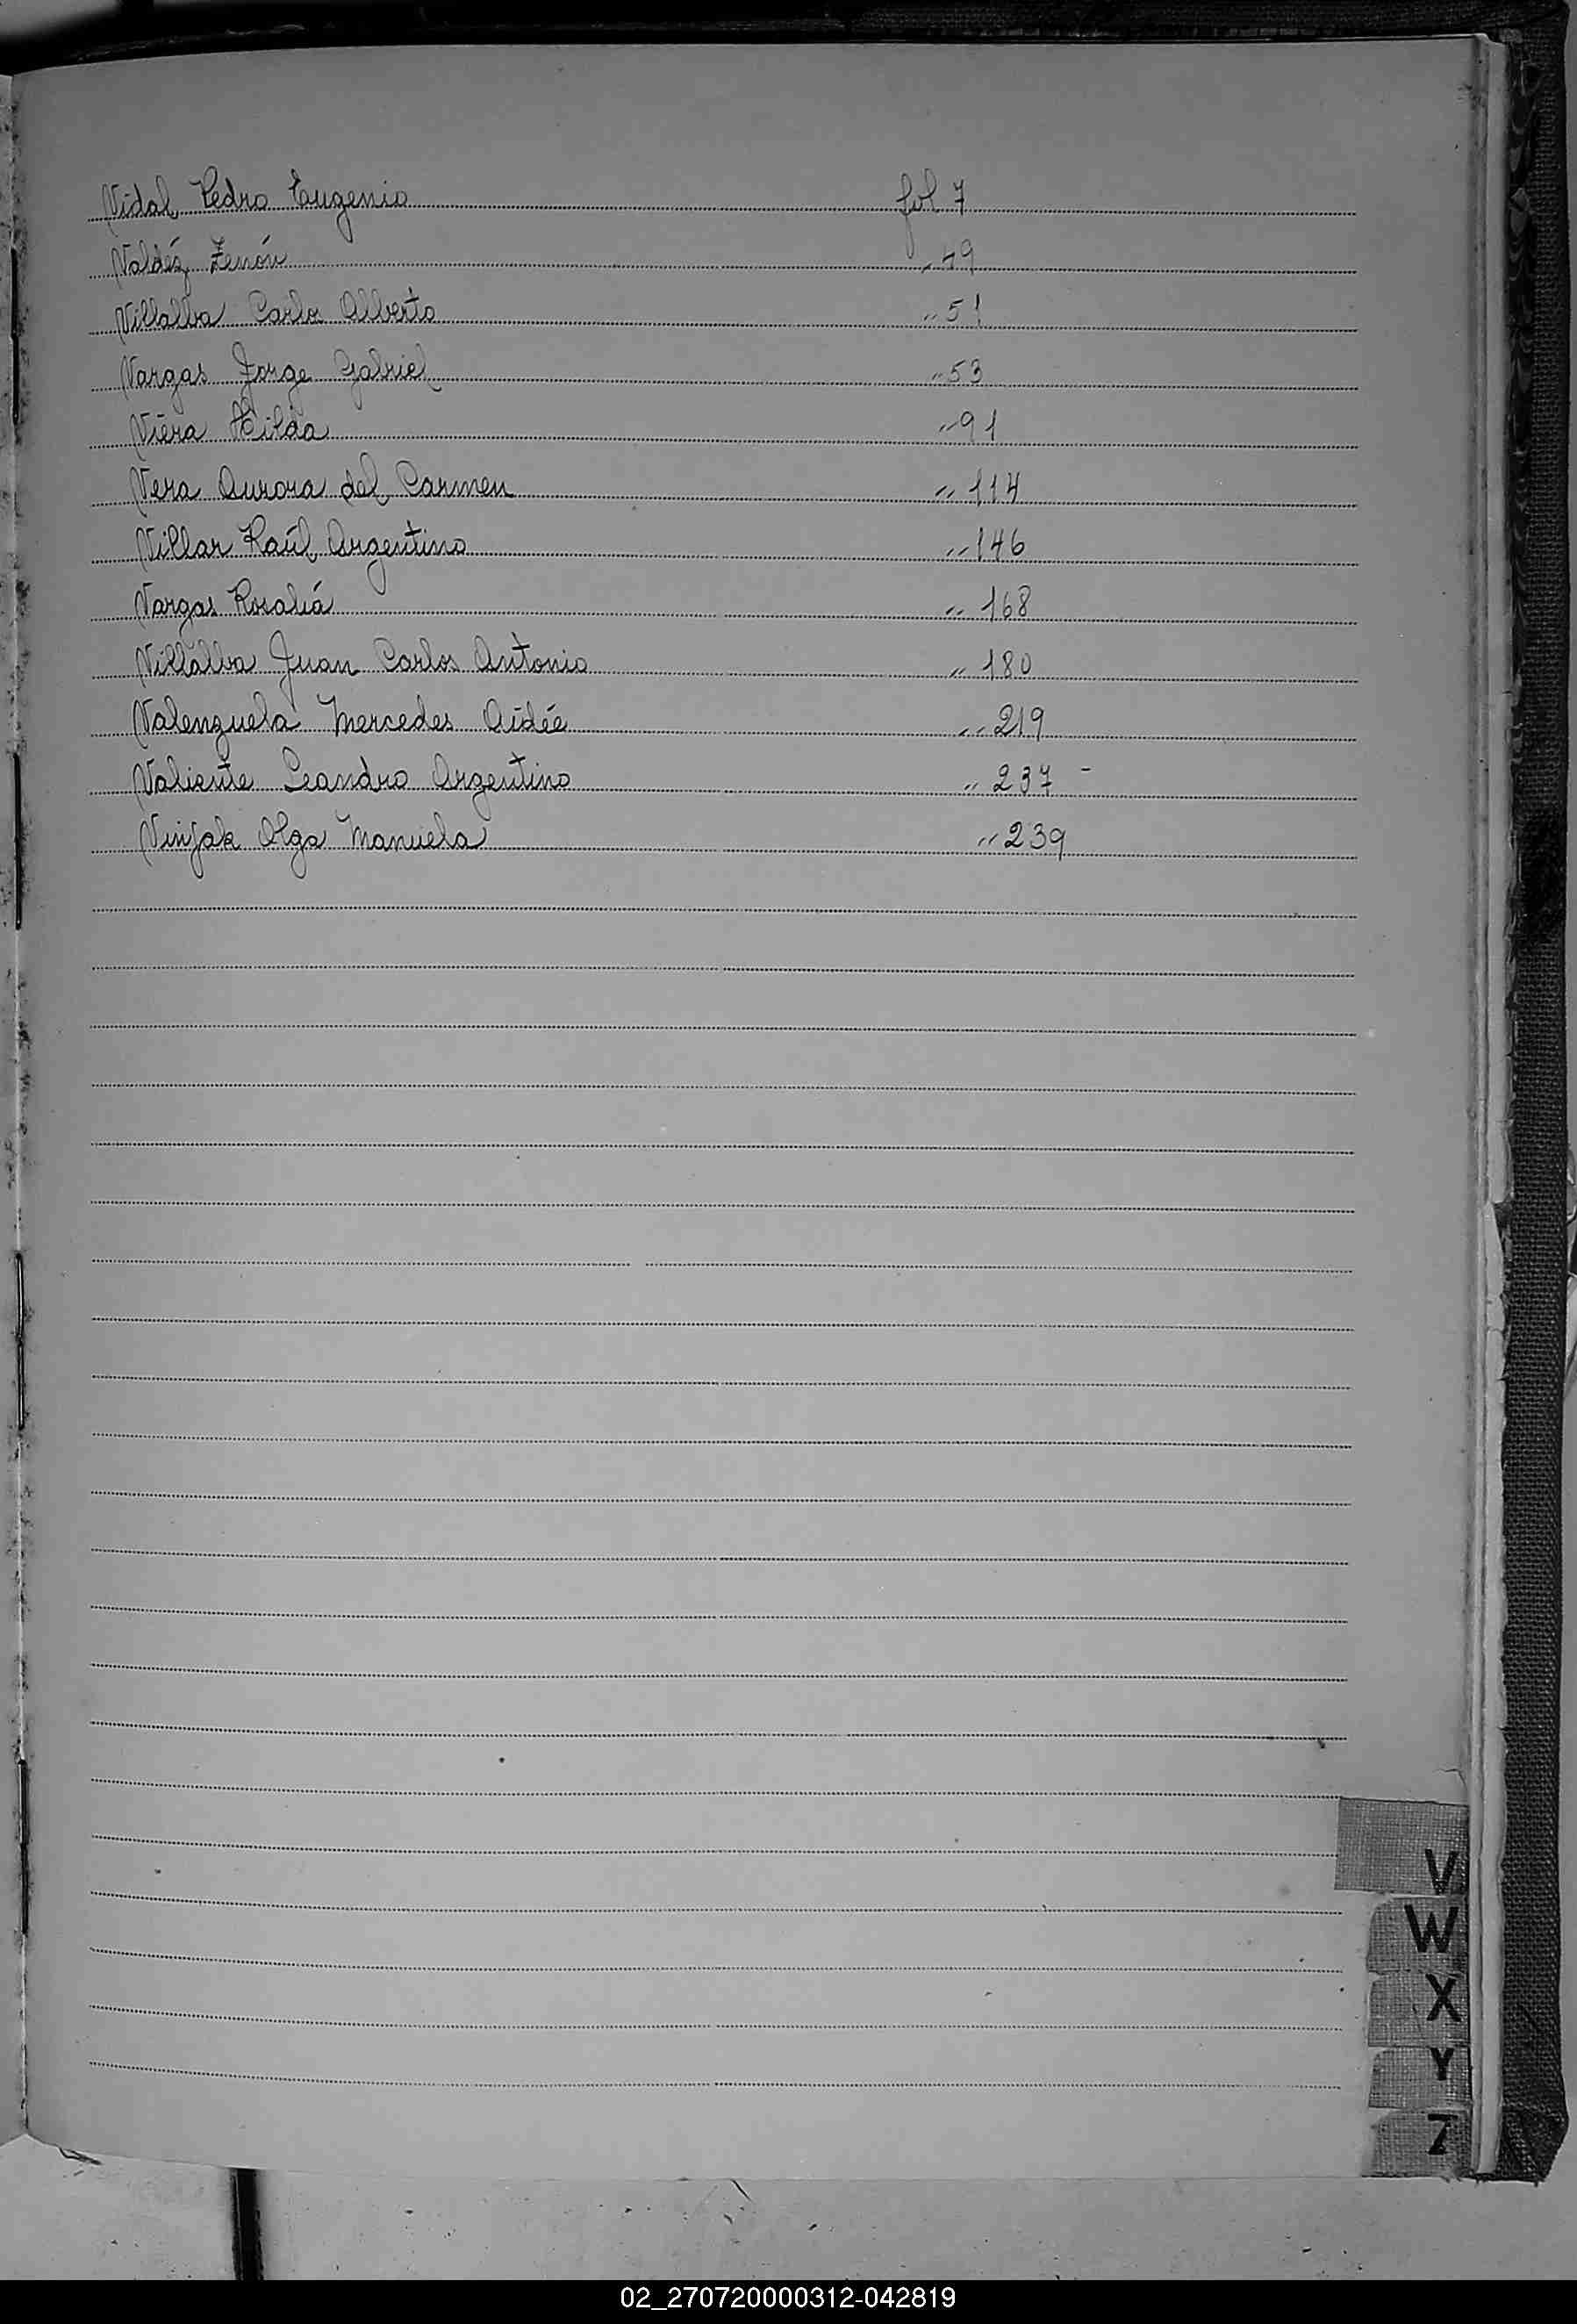 Vidal Pedro Eugenio fol 7
Valdéz Zenón " 49
Villalba Carlos Alberto " 51
Vargas Jorge Gabriel " 53
Viera Hilda " 91
Vera Aurora del Carmen " 114
Villar Raúl Argentino " 146
Vargas Rosalía " 168
Villalba Juan Carlos Antonio " 180
Valenzuela Mercedes Aidée " 219
Valiente Leandro Argentino " 237 -
Vinjak Olga Manuela " 239
V
W
X
Y
Z
02_270720000312-042819